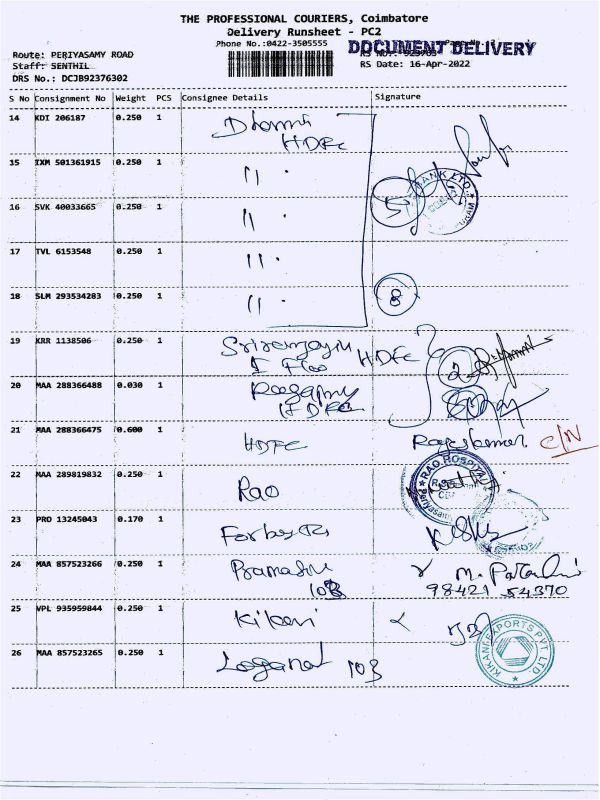 THE PROFESSIONAL COURIERS, Coimbatore
Delivery Runsheet - PC2
Phone No.:0422-3505555
DOCUMENT DELIVERY
Route: PERIYASAMY ROAD
Staff: SENTHIL
RS Date: 16-Apr-2022
DRS No.: DCJB92376302
S No Consignment No Weight PCS Consignee Details Signature
14 KDI 206187 0.250 1
HDFC
15 IXM 501361915 0.250 1 "
16 SVK 40033665 0.250 1 " 5
17 TVL 6153548 0.250 1 "
18 SLM 293534283 0.250 1 " 8
19 KRR 1138506 0.250 1 HDFC 2
20 MAA 288366488 0.030 1
HDFC
21 MAA 288366475 0.600 1 HDFC Rajeskumar C/N
22 MAA 289819832 0.250 1 Rao RAO HOSPITAL
23 PRO 13245043 0.170 1
24 MAA 857523266 0.250 1
103 98421 54370
25 VPL 935959844 0.250 1 Kikani
KIKANI EXPORTS PVT. LTD
26 MAA 857523265 0.250 1 Loganat 103